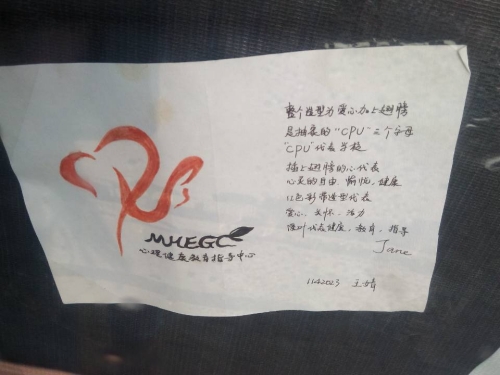 整个造型为爱心加上翅膀
是抽象的"CPU"三个字母
"CPU"代表学校
插上翅膀的心代表
心灵的自由、愉悦、健康
红色彩带造型代表
爱心、关怀、活力
绿叶代表健康、教育、指导
Jane
MHEGC
心理健康教育指导中心
1142023 王婧